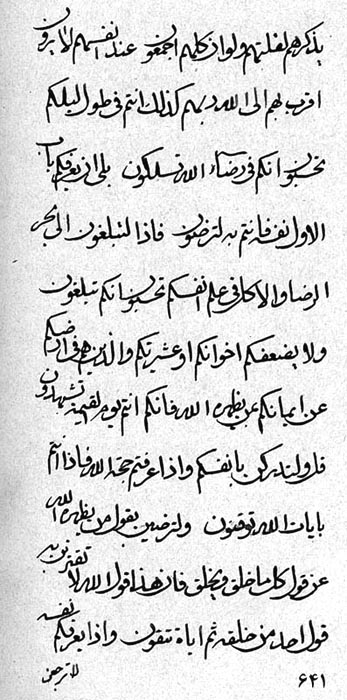 يذكرهم لعلتهم ولو ان كلهم اجمعون عند انفسهم لا يرون
اقرب لهم الى الله ربهم كذلك انتم فى طول ليلكم
تحسبون انكم فى رضاء الله تسلكون بلى ان يعرفكم باب
الاول نفسه فانتم به لترضون فاذا لتبلغون الى بحر
الرضا والا كل فى علم انفسكم تحسبون انكم تبلغون
ولا يضعفكم اخوانكم او عشيرتكم والذين هم فى ارضكم
عن ايمانكم بمن يظهره الله فانكم انتم يوم القيمة تشهدون
قل ولتدركن بانفسكم واذا عرفتم حجة الله فاذا انتم
بايات الله توقنون ولترضين بقول من يظهره الله
عن قول كل ما خلق ويخلق فان هذا قول الله لا تقترن به
قول احد من خلقه ثم اياه تتقون واذا يعرفكم نفسه
٦٤١